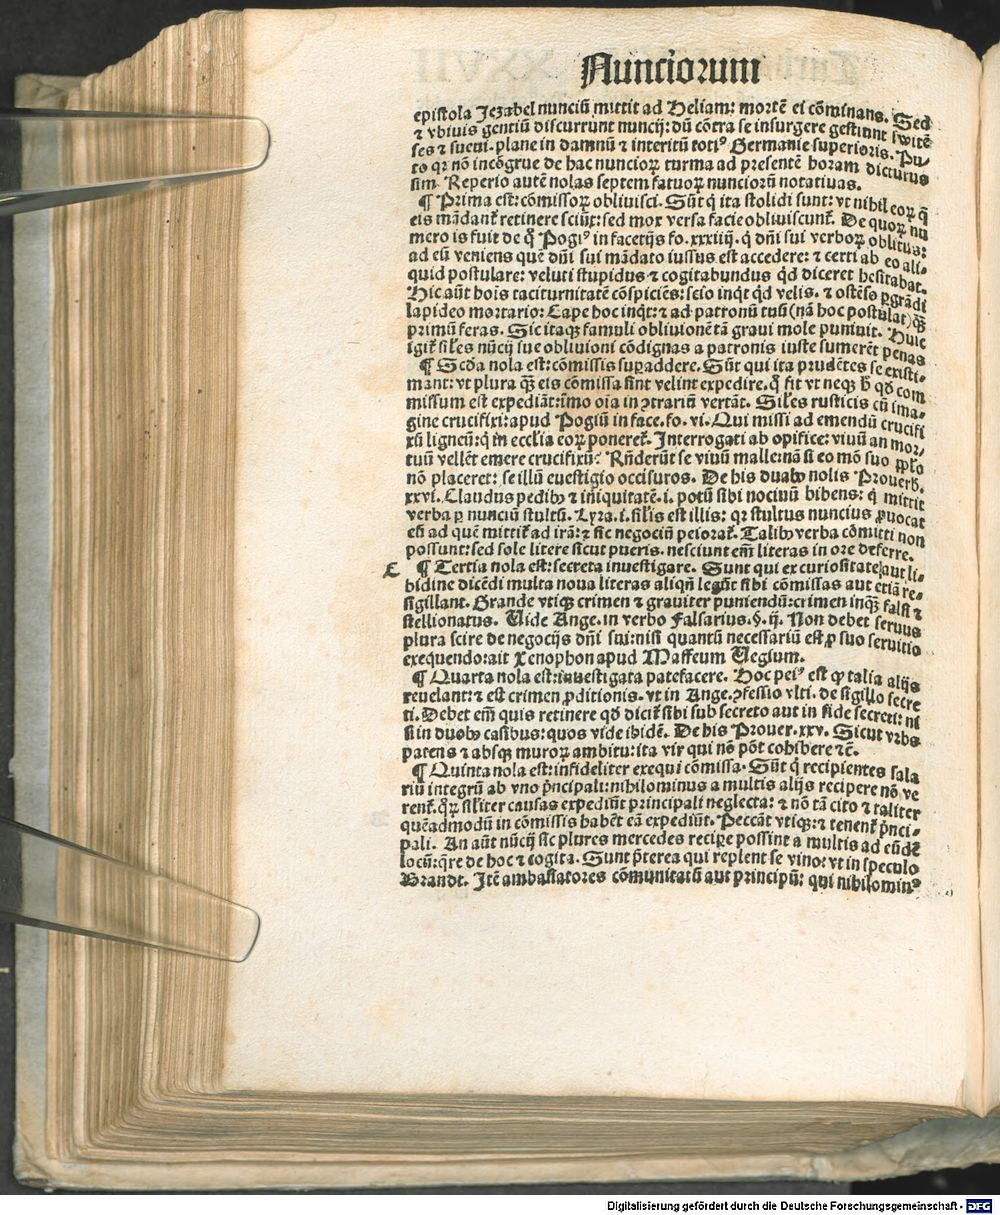 Nunciorum
epistola Jezabel nunciū mittit ad Heliam: mortē ei cōminans. Sed
⁊ vbiuis gentiū discurrunt nuncij: dū cōtra se insurgere gestiunt switē
ses ⁊ sueui. plane in damnū ⁊ interitū totiꝰ Germanie superioris. Pu⸗
to qr nō incōgrue de hac nuncioꝝ turma ad presentē horam dicturus
sim. Reperio autē nolas septem fatuoꝝ nuncioꝝ notatiuas.
¶ Prima est: cōmissoꝝ obliuisci. Sūt q̇ ita stolidi sunt: vt nihil eoꝝ q̄
eis mādant᷑ retinere sciūt: sed mox versa facie obliuiscunt᷑. De quoꝝ nu
mero is fuit de q̊ Pogiꝰ in facetijs fo. xxxiiij. q̇ dn̄i sui verboꝝ oblitus:
ad eū veniens quē dn̄i sui mādato iussus est accedere: ⁊ certi ab eo ali⸗
quid postulare: veluti stupidus ⁊ cogitabundus qd̓ diceret hesitabat.
Hic aūt hoīs taciturnitatē cōspiciēs: scio inqt qd̓ velis. ⁊ ostēso ꝑgrādi
lapideo mortario: Cape hoc inqt: ⁊ ad patronū tuū (nā hoc postulat) q̄ꝫ
primū feras. Sic itaqꝫ famuli obliuionē tā graui mole puniuit. Huic
igit᷑ siles nūcij sue obliuioni cōdignas a patronis iuste sumerēt penas
¶ Scd̓a nola est: cōmissis supaddere. Sūt qui ita prudētes se existi⸗
mant: vt plura q̄ꝫ eis cōmissa sint velint expedire. q̊ fit vt neqꝫ h̓ qd̓ com
missum est expediāt: īmo oīa in ꝯtrariū vertāt. Siles rusticis cū ima⸗
gine crucifixi: apud Pogiū in face. fo. vi. Qui missi ad emendū crucifi
xū ligneū: q̇ in ecclīa eoꝝ poneret᷑. Interrogati ab opifice: viuū an mor⸗
tuū vellēt emere crucifixū: Rn̄derūt se viuū malle: nā si eo mō suo ꝓplo
nō placeret: se illū euestigio occisuros. De his duabꝰ nolis Prouerb.
xxvi. Claudus pedibꝰ ⁊ iniquitatē .i. potū sibi nociuū bibens: q̇ mittit
verba ꝑ nunciū stultū. Lyra .i. silis est illis: qr stultus nuncius ꝓuocat
eū ad quē mittit᷑ ad irā: ⁊ sic negociū peiorat᷑. Talibꝰ verba cōmitti non
possunt: sed sole litere sicut pueris. nesciunt em̄ literas in ore deferre.
C ¶ Tertia nola est: secreta inuestigare. Sunt qui ex curiositate aut li⸗
bidine dicēdi multa noua literas aliqn̄ legūt sibi cōmissas aut etiā re⸗
sigillant. Grande vtiqꝫ crimen ⁊ grauiter puniendū: crimen inqꝫ falsi ⁊
stellionatus. Uide Ange. in verbo Falsarius. §. ij. Non debet seruus
plura scire de negocijs dn̄i sui: nisi quantū necessariū est ꝓ suo seruitio
exequendo: ait Xenophon apud Maffeum Uegium.
¶ Quarta nola est: inuestigata patefacere. Hoc peiꝰ est qꝫ talia alijs
reuelant: ⁊ est crimen ꝓditionis. vt in Ange. ꝯfessio vlti. de sigillo secre
ti. Debet em̄ quis retinere qd̓ dicit᷑ sibi sub secreto aut in fide secreti: ni
si in duobꝰ casibus: quos vide ibidē. De his Prouer. xxv. Sicut vrbs
patens ⁊ absqꝫ muroꝝ ambitu: ita vir qui nō pōt cohibere ⁊c̄.
¶ Quinta nola est: infideliter exequi cōmissa. Sūt q̇ recipientes sala
riū integrū ab vno prīncipali: nihilominus a multis alijs recipere nō ve
rent᷑. qꝝ siliter causas expediūt principali neglecta: ⁊ nō tā cito ⁊ taliter
quēadmodū in cōmissis habēt eā expediūt. Peccāt vtiqꝫ: ⁊ tenent᷑ prīnci⸗
pali. An aūt nūcij sic plures mercedes recipe possint a multis ad eūdē
locū: qre de hoc ⁊ cogita. Sunt pterea qui replent se vino: vt in speculo
Brandt. Itē ambassatores cōmunitatū aut principū: qui nihilominꝰ
Digitalisierung gefördert durch die Deutsche Forschungsgemeinschaft - DFG